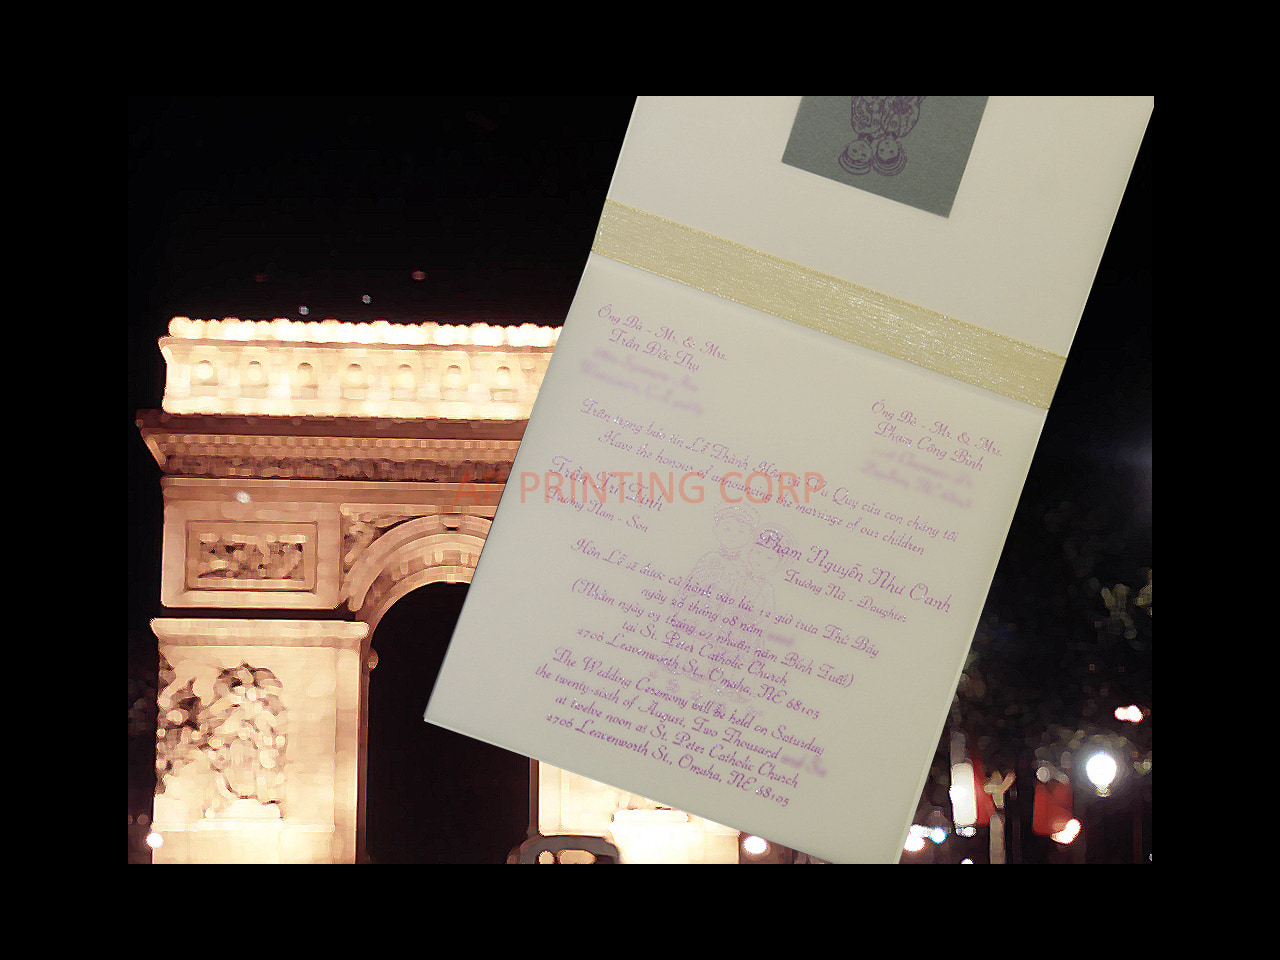 Ông Bà - Mr. & Mrs.
Trần Đức Thụ
Ông Bà - Mr. & Mrs.
Phạm Công Bình
Trân trọng báo tin Lễ Thành Hôn và Vu Quy của con chúng tôi
Have the honour of announcing the marriage of our children
PRINTING CORP
Trần Tinh
Trưởng Nam - Son
Phạm Nguyễn Như Oanh
Trưởng Nữ - Daughter
Hôn Lễ sẽ được cử hành vào lúc 12 giờ trưa Thứ Bảy
ngày 26 tháng 08 năm
(Nhằm ngày 03 tháng 07 nhuần năm Bính Tuất)
tại St. Peter Catholic Church
2706 Leavenworth St., Omaha, NE 68105
The Wedding Ceremony will be held on Saturday,
the twenty-sixth of August, Two Thousand
at twelve noon at St. Peter Catholic Church
2706 Leavenworth St., Omaha, NE 68105